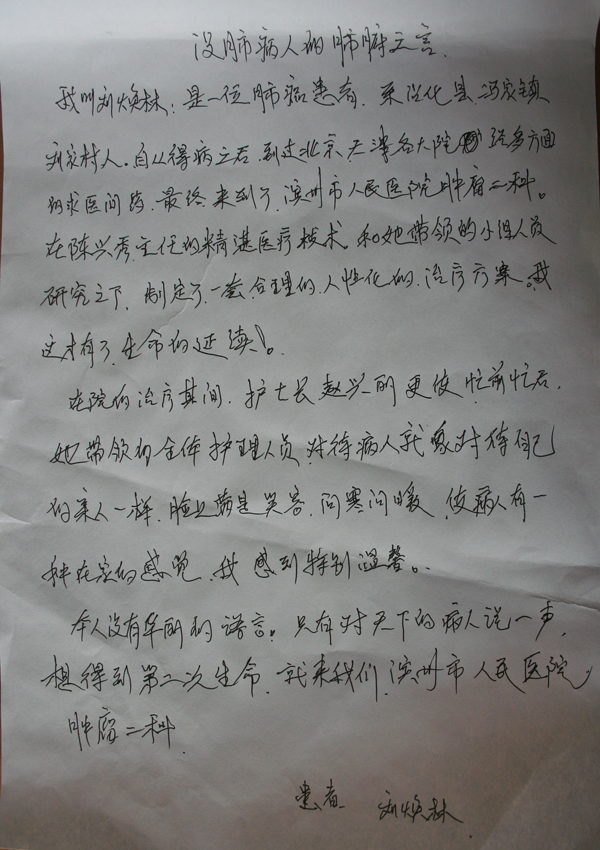 没肺病人的肺腑之言.
我叫刘焕林:是一位肺癌患者.系沾化县冯家镇
刘家村人.自从得病之后.到过北京天津各大院经多方面
的求医问药.最终来到了.滨州市人民医院肿瘤二科。
在陈兴秀主任的精湛医疗技术.和她带领的小组人员
研究之下.制定了一套.合理的.人性化的.治疗方案.我
这才有了.生命的延续!。
在院的治疗其间.护士长赵兴丽更使忙前忙后.
她带领的全体护理人员.对待病人就象对待自己
的亲人一样.脸上带是笑容.问寒问暖.使病人有一
种在家的感觉.我感到特别温馨。.
本人没有华丽的语言。只有对天下的病人说一声,
想得到第二次生命.就来我们.滨州市人民医院
肿瘤二科.
患者 刘焕林.